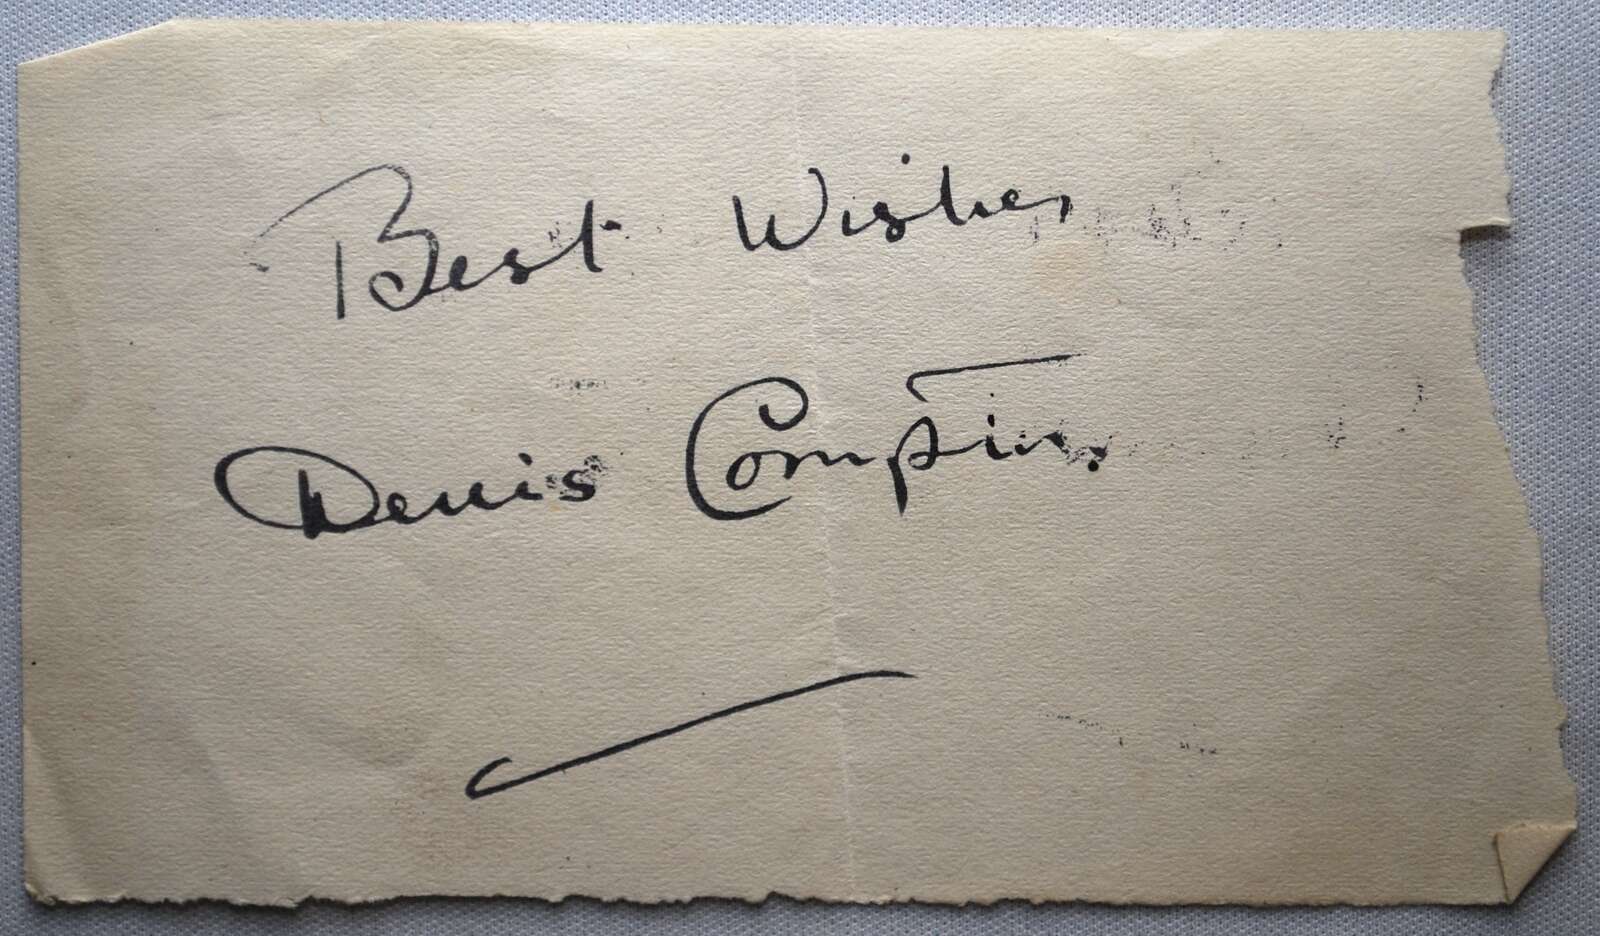 Best Wishes
Denis Compton